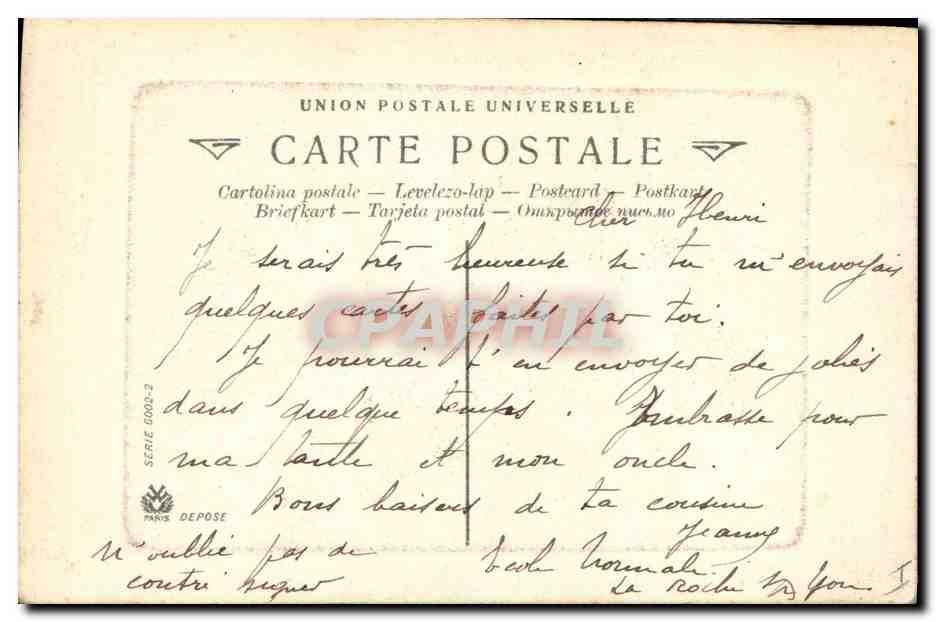 UNION POSTALE UNIVERSELLE
CARTE POSTALE
Cartolina postale — Levelezo-lap — Postcard — Postkart
Briefkart — Tarjeta postal — Открытое письмо
Cher Henri
Je serais très heureuse si tu m'envoyais
quelques cartes faites par toi.
CPAPHIL
Je pourrai t'en envoyer de jolies
dans quelque temps. Embrasse pour
ma tante et mon oncle.
Bons baisers de ta cousine
Jeanne
SERIE 6002-2
PARIS DEPOSE
N'oublie pas de
contre signer
Ecole Normale
La Roche s/ Yon